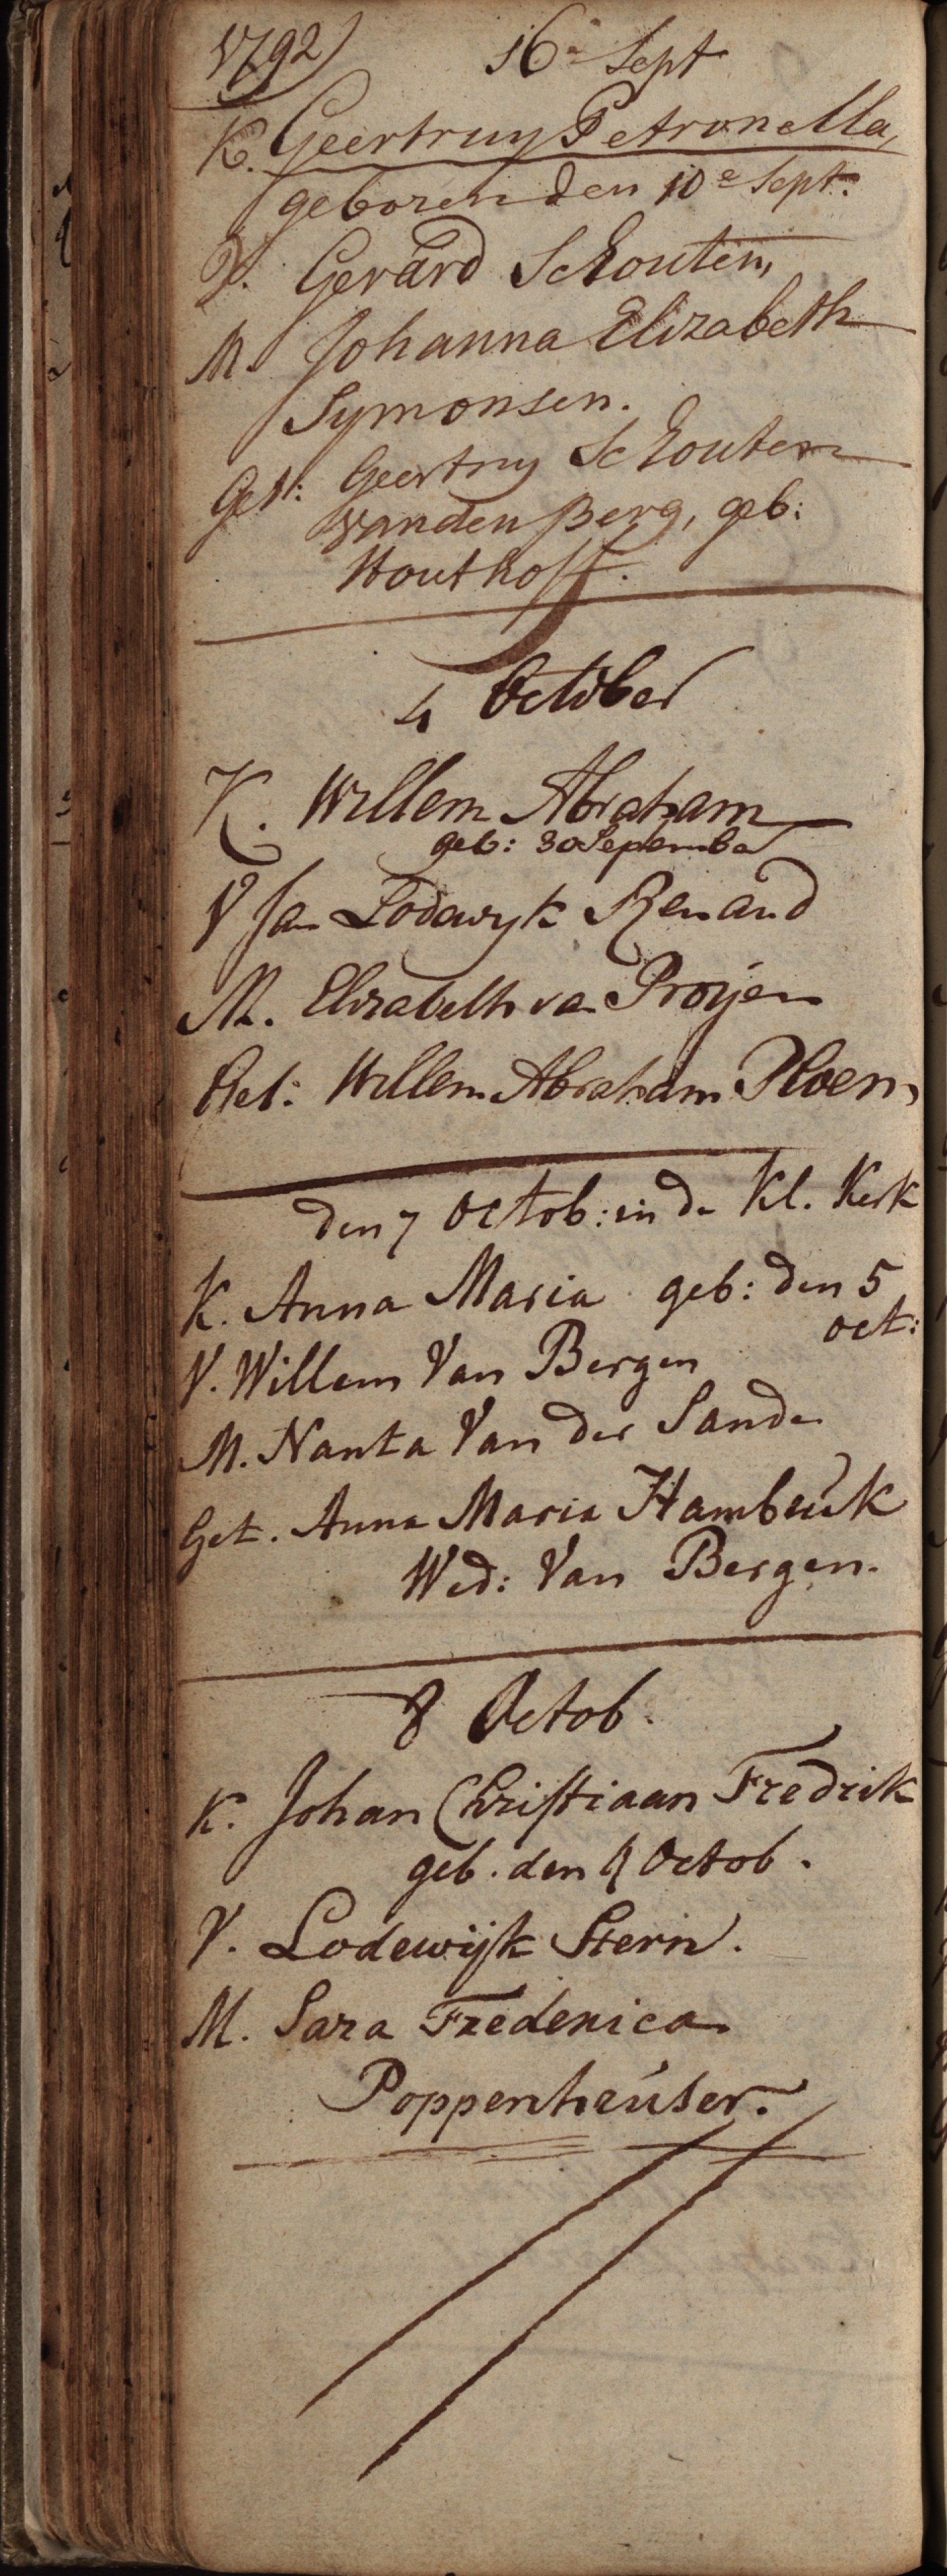 1792) 16e Sept
K. Geertruy Petronella,
geboren den 10e Sept.
V. Gerard Schouten,
M. Johanna Elizabeth
Symonsen.
Get: Geertruy Schouten
vanden Berg, geb:
Houthoff.
4 October
K. Willem Abraham
geb: 30 September
V Jan Lodewyk Renaud
M. Elizabeth van Proijen
Get: Willem Abraham Ploen,
den 7 Octob: in de Kl. Kerk
K. Anna Maria geb: den 5
oct:
V. Willem Van Bergen
M. Nanta Van der Sande
Get. Anna Maria Hambeuk
Wed: Van Bergen.
8 Octob.
K. Johan Christiaan Fredrik
geb. den Octob.
V. Lodewijk Stern.
M. Sara Frederica
Poppenheuser.